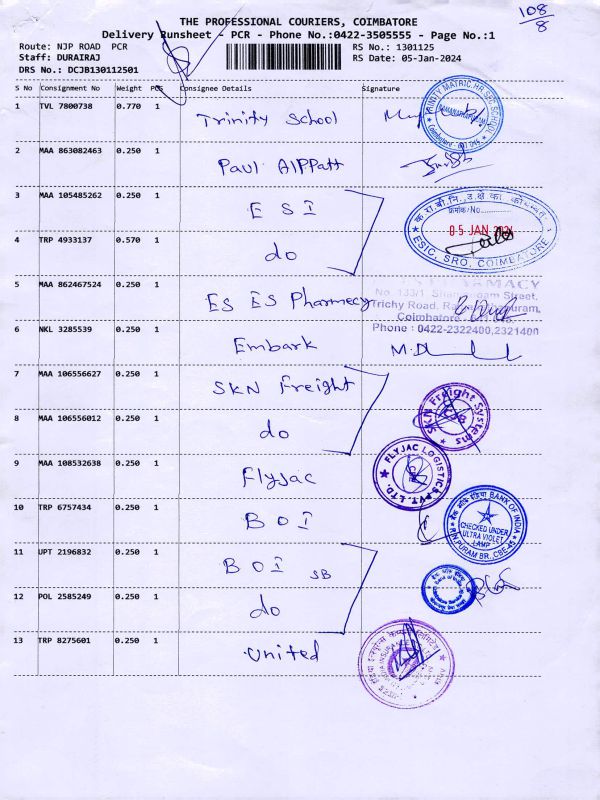 108/8
THE PROFESSIONAL COURIERS, COIMBATORE
Delivery Runsheet - PCR - Phone No.:0422-3505555 - Page No.:1
Route: NJP ROAD PCR
RS No.: 1301125
Staff: DURAIRAJ
RS Date: 05-Jan-2024
DRS No.: DCJB130112501
S No Consignment No Weight PCS Consignee Details Signature
1 TVL 7800738 0.770 1 Trinity School
TRINITY MATRIC.HR.SEC.SCHOOL
Coimbatore - 641 045
2 MAA 863082463 0.250 1 Paul AlPPatt
3 MAA 105485262 0.250 1 ESI
क्रमांक/No.
05 JAN 2024
ESIC, SRO, COIMBATORE
4 TRP 4933137 0.570 1 do
5 MAA 862467524 0.250 1 ES ES Pharmacy
PHARMACY
No. 133/1 Street,
Trichy Road, Ramanathapuram,
Coimbatore
Phone : 0422-2322400,2321400
6 NKL 3285539 0.250 1 Embark
7 MAA 106556627 0.250 1 SKN Freight
8 MAA 106556012 0.250 1 do
SKN Freight Systems
CBE
9 MAA 108532638 0.250 1 Flyjac
FLYJAC LOGISTICS PVT. LTD.
10 TRP 6757434 0.250 1 BOI
बैंक ऑफ इंडिया BANK OF INDIA
CHECKED UNDER
ULTRA VIOLET
LAMP
R.N.PURAM BR., CBE-45
11 UPT 2196832 0.250 1 BOI SB
12 POL 2585249 0.250 1 do
13 TRP 8275601 0.250 1 United